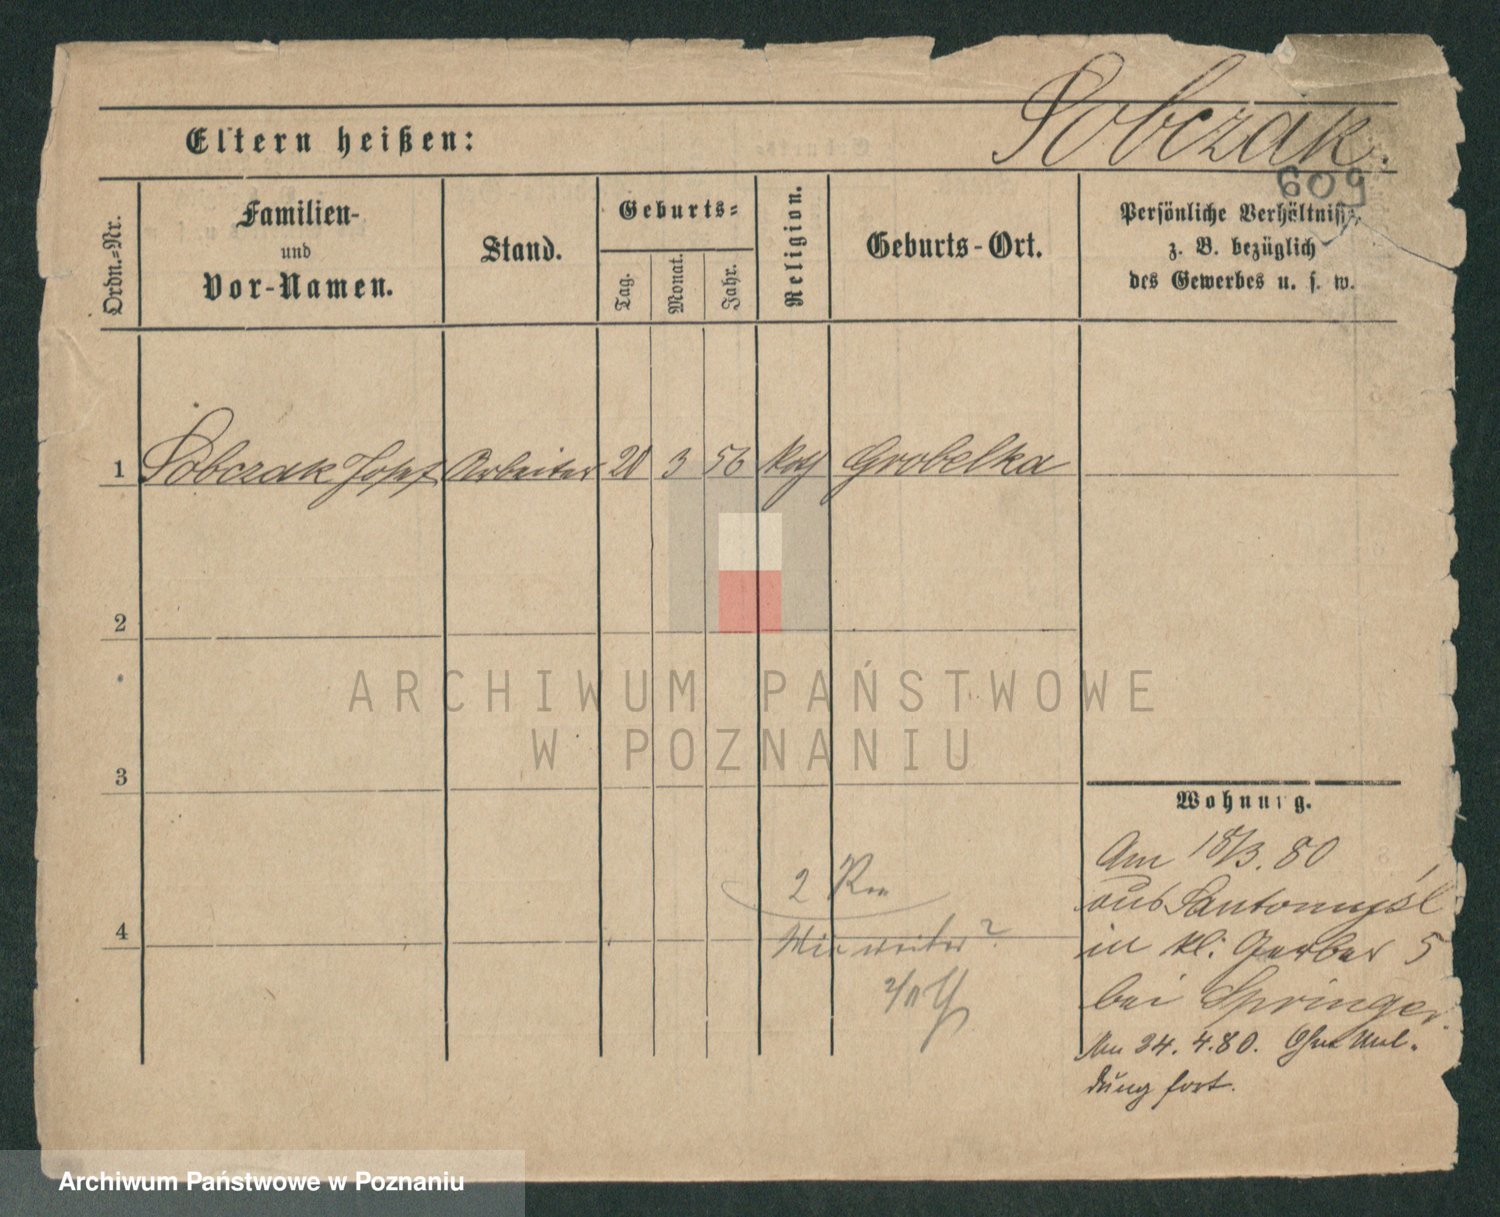 Sobczak.
609
Eltern heißen:
Ordn.-Nr.
Familien-
und
Vor-Namen.
Stand.
Geburts-
Tag.
Monat.
Jahr.
Religion.
Geburts-Ort.
Persönliche Verhältnisse
z. B. bezüglich
des Gewerbes u. s. w.
1 Sobczak Josef Arbeiter 20 3 56 kath Grobelka
2
3
4
Wohnung.
Am 18/3. 80
aus Santomysl
in kl. Gerber 5
bei Springer.
Am 24. 4. 80. Ohne Mel-
dung fort.
2
weiter?
ARCHIWUM PAŃSTWOWE
W POZNANIU
Archiwum Państwowe w Poznaniu